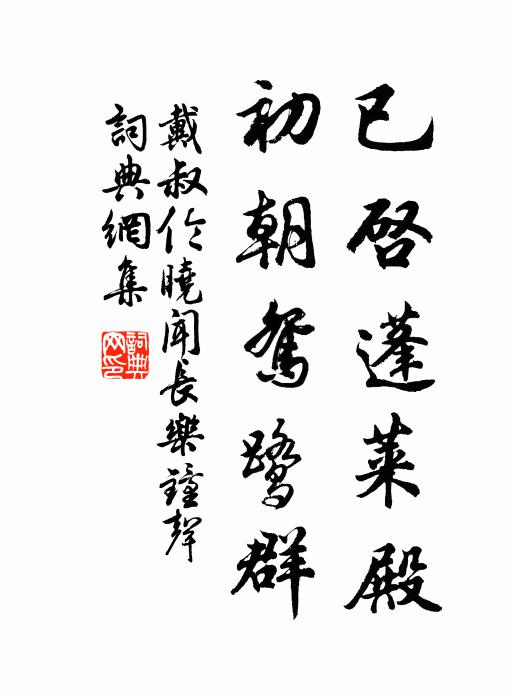 已啓蓬萊殿
初朝鴛鷺群
戴叔伦曉聞長樂鐘聲
詞典網集
詞典网印